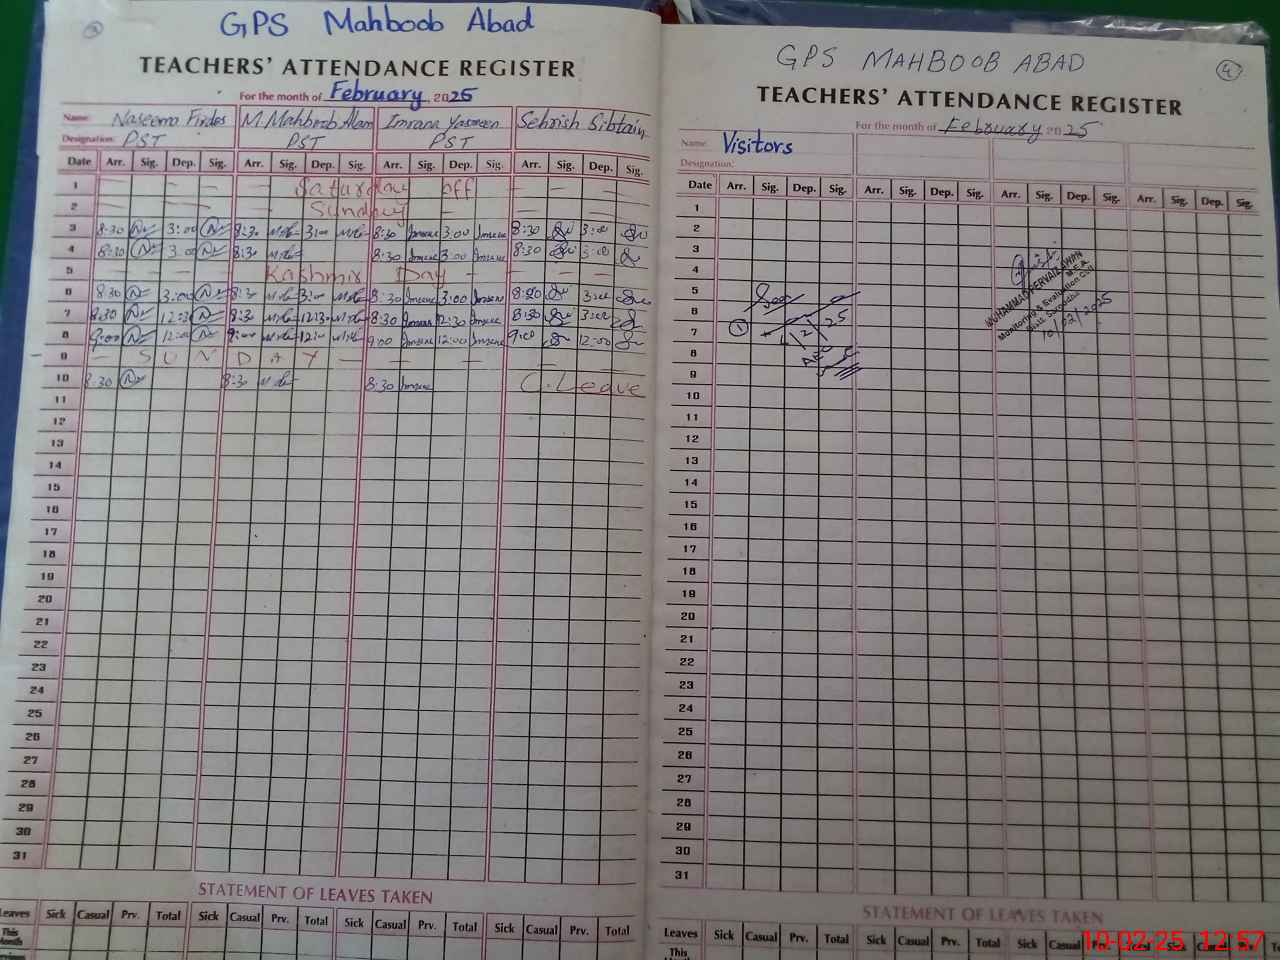 GPS Mahboob Abad
TEACHERS' ATTENDANCE REGISTER
For the month of February 2025
Name: Naseema Firdos M. Mahboob Alam Imrana Yasmeen Sehrish Sibtain
Designation: PST PST PST
Date Arr. Sig. Dep. Sig. Arr. Sig. Dep. Sig. Arr. Sig. Dep. Sig. Arr. Sig. Dep. Sig.
1 Saturday off
2 Sunday
3 8:30 3:00 8:30 3:00 8:30 3:00 8:30 3:00
4 8:30 3:00 8:30 8:30 3:00 8:30 3:00
5 Kashmir Day
6 8:30 3:00 8:30 3:00 8:30 3:00 8:30 3:00
7 8:30 12:30 8:30 12:30 8:30 12:30 8:30
8 9:00 12:00 9:00 12:00 9:00 12:00 9:00 12:00
9 SUNDAY
10 8:30 8:30 8:30 C. Leave
11
12
13
14
15
16
17
18
19
20
21
22
23
24
25
26
27
28
29
30
31
STATEMENT OF LEAVES TAKEN
Leaves Sick Casual Prv. Total Sick Casual Prv. Total Sick Casual Prv. Total Sick Casual Prv. Total
This Month
GPS MAHBOOB ABAD
4
TEACHERS' ATTENDANCE REGISTER
For the month of February 2025
Name: Visitors
Designation:
Date Arr. Sig. Dep. Sig. Arr. Sig. Dep. Sig. Arr. Sig. Dep. Sig. Arr. Sig. Dep. Sig.
1
2
3
4
5
6
7
8
9
10
11
12
13
14
15
16
17
18
19
20
21
22
23
24
25
26
27
28
29
30
31
MUHAMMAD PERVAIZ AWAN
10/02/2025
STATEMENT OF LEAVES TAKEN
Leaves Sick Casual Prv. Total Sick Casual Prv. Total Sick Casual Prv. Total Sick Casual Prv.
This
10-02-25 12:57